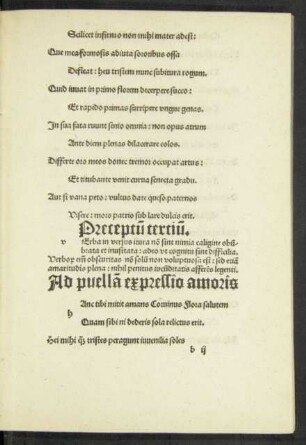 Scilicet infirmo non mihi mater adest:
Que meafformosis adiuta sororibus ossa
Defleat: heu tristem nunc subitura rogum.
Quid iuuat in primo florem decerpere succo:
Et rapido primas surripere vngue genas.
In sua fata ruunt senio omnia: non opus atrum
Ante diem plenas dilacerare colos.
Differte oro meos donec tremor occupat artus:
Et titubante venit curua senecta gradu.
Aut si vana peto: vultus date queso paternos
Visere: mors patrio sub lare dulcis erit.
Preceptū tertiū.
v Erba in versus itura nō sint nimia caligine obū
brata et inusitata: adeo vt cognitu sint difficilia.
Verboȝ em̄ obscuritas nō solū non voluptuosa est: sed etiā
amaritudis plena: nihil penitus iucūditatis afferēs legenti.
Ad puellā expressio amoris
h Anc tibi mittit amans Coruinus Flora salutem
Quam sibi ni dederis sola relictus erit.
Hei mihi q̄ȝ tristes peragunt iuuenilia soles
b ij